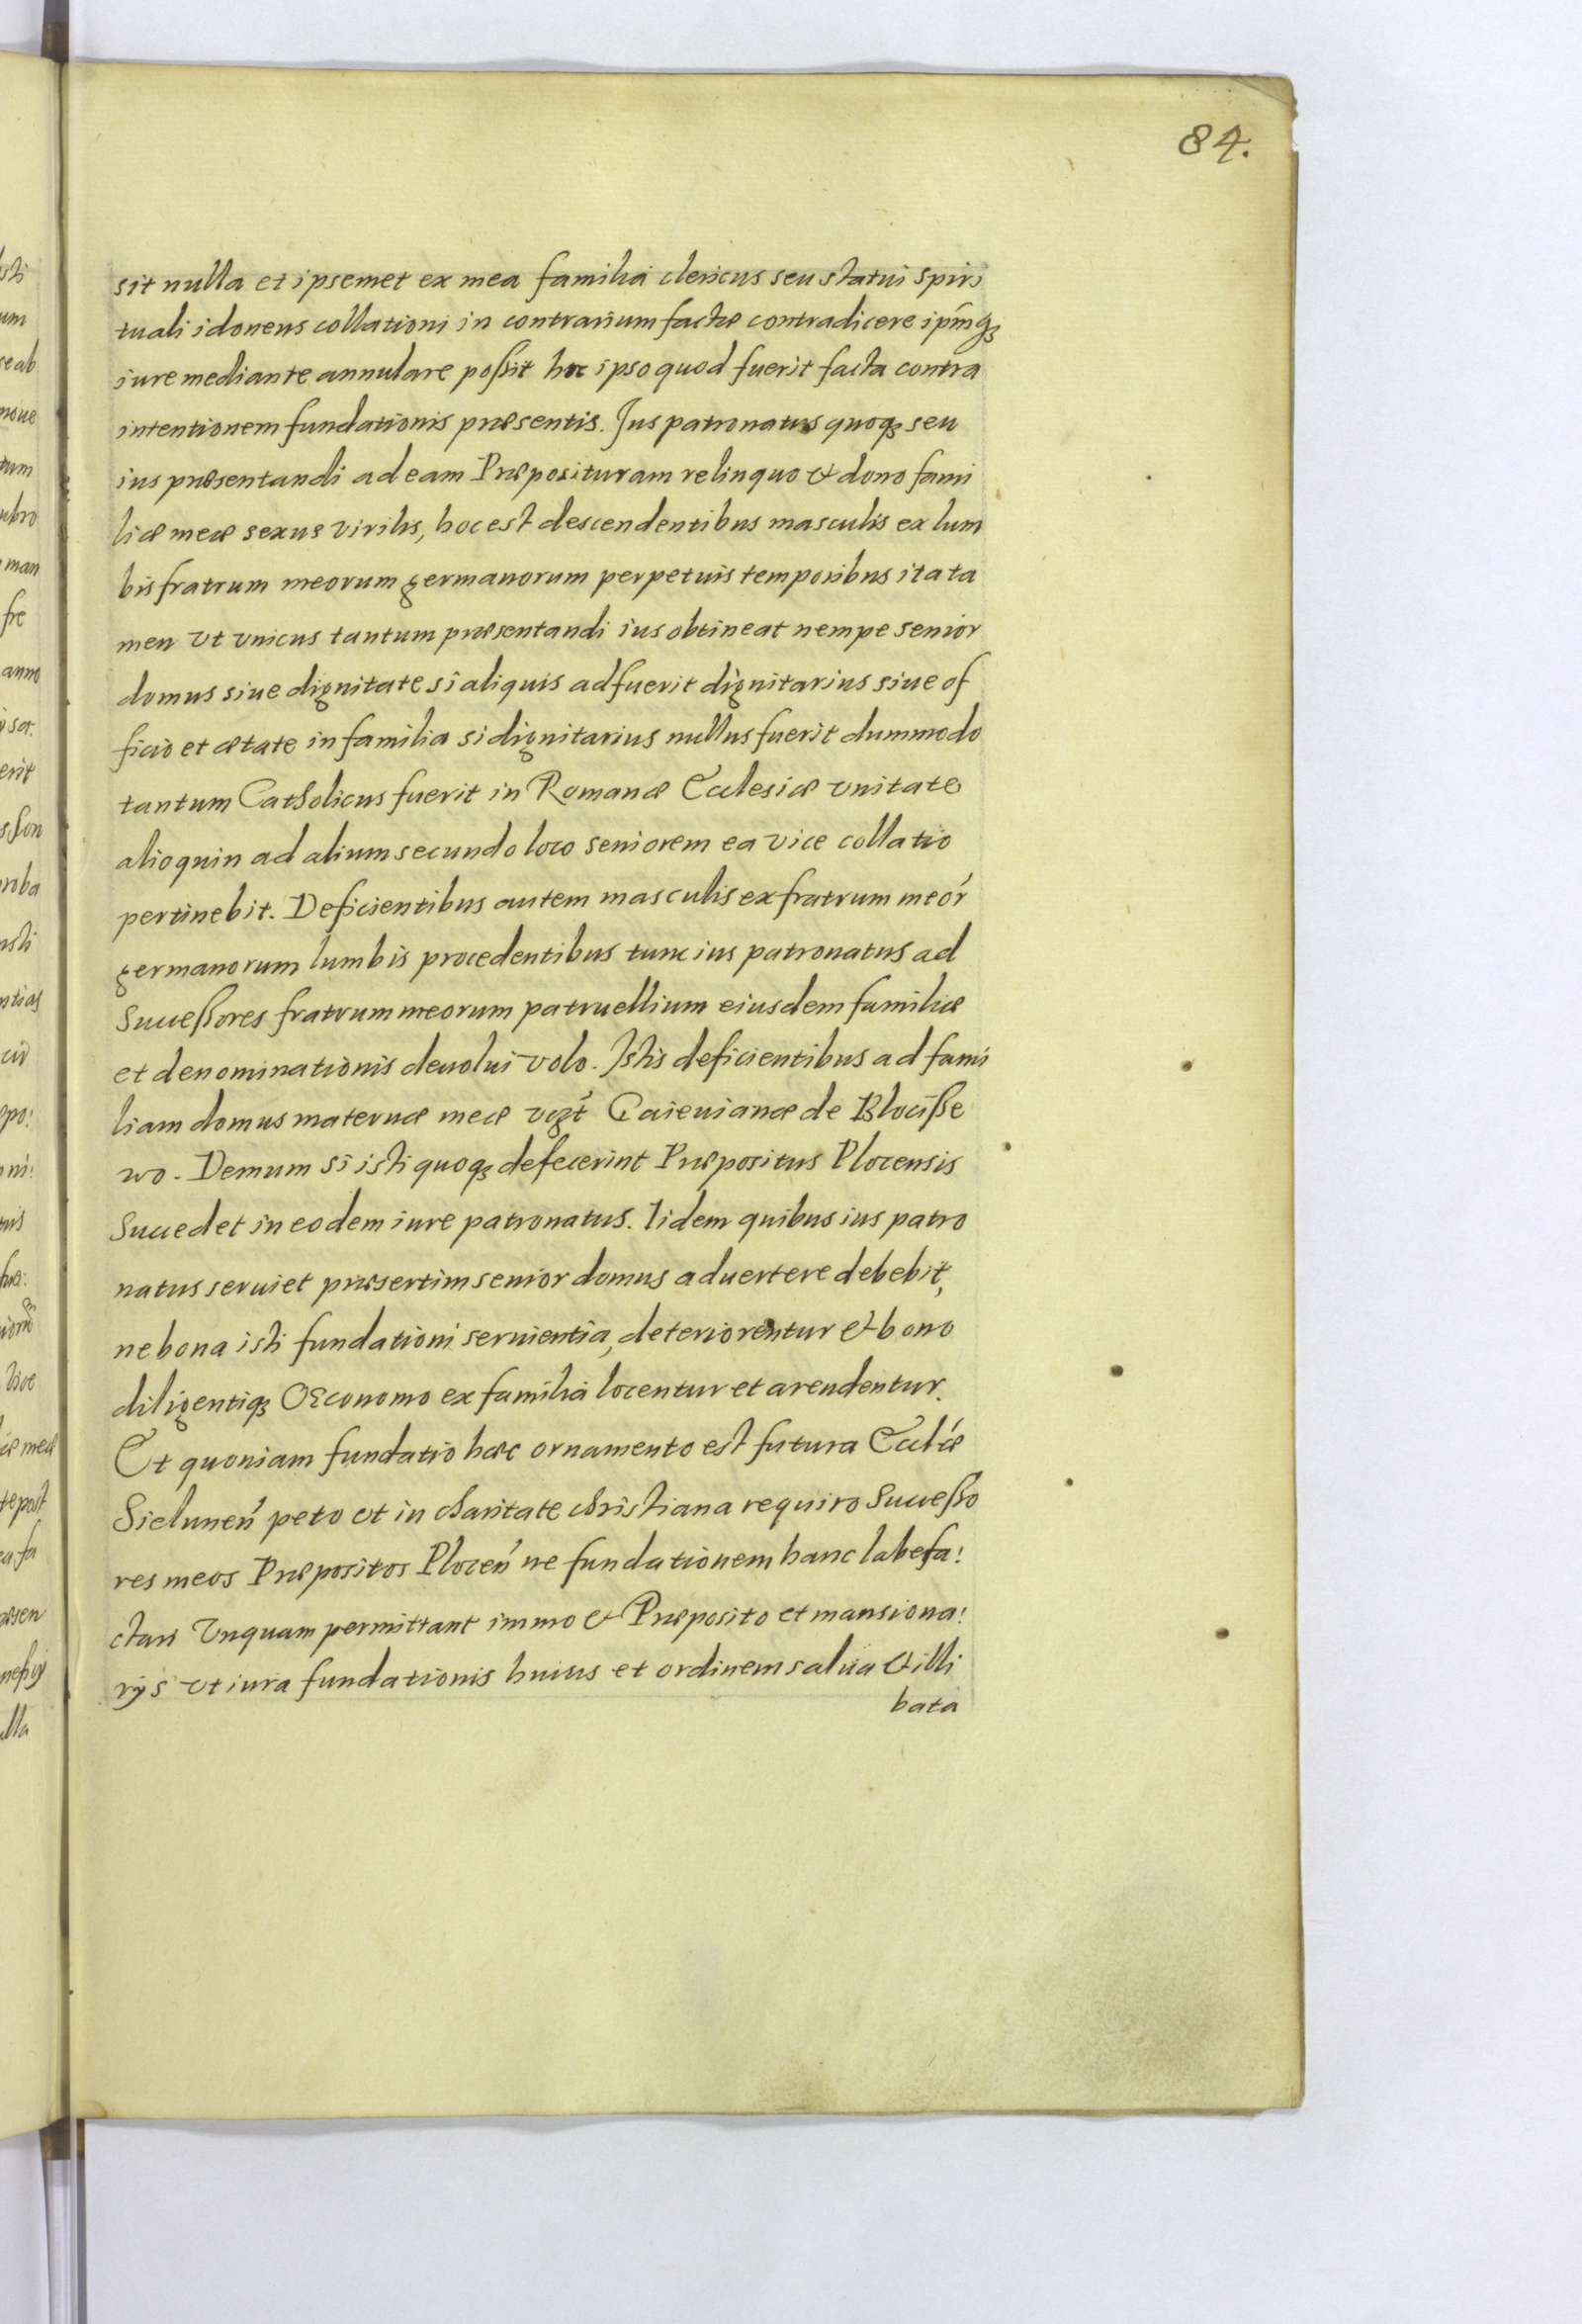 84.
sit nulla et ipsemet ex mea familia clericus seu statui spiri
tuali idoneus collationi in contrarium factæ contradicere ip̃mq́ꝫ
iure mediante annulare poßit hoc ipso quod fuerit facta contra
intentionem fundationis præsentis. Jus patronatus quoqꝫ seu
ius præsentandi ad eam Præposituram relinquo & dono fami
liæ meæ sexus virilis, hoc est descendentibus masculis ex lum
bis fratrum meorum germanorum perpetuis temporibus ita ta
men vt vnicus tantum præsentandi ius obtineat nempe senior
domus siue dignitate si aliquis adfuerit dignitarius siue of
ficio et ætate in familia si dignitarius nullus fuerit dummodo
tantum Catholicus fuerit in Romanæ Ecclesiæ vnitate
alioquin ad alium secundo loco seniorem ea vice collatio
pertinebit. Deficientibus autem masculis ex fratrum meor̃
germanorum lumbis procedentibus tunc ius patronatus ad
Succeßores fratrum meorum patruellium eiusdem familiæ
et denominationis deuolui volo. Istis deficientibus ad fami
liam domus maternæ meæ vꝫt̃ Caieuianæ de Blociße
wo. Demum si isti quoqꝫ defecerint Præpositus Plocensis
Succedet in eodem iure patronatus. Iidem quibus ius patro
natus seruiet præsertim senior domus aduertere debebit,
ne bona isti fundationi seruientia, deteriorentur & bono
diligentiqꝫ Œconomo ex familia locentur et arendentur.
Et quoniam fundatio hæc ornamento est futura Eccl̃æ
Sielunen̄ peto et in charitate christiana requiro Succeßo
res meos Præpositos Plocen̄ ne fundationem hanc labefa!
ctari Vnquam permittant immo & Præposito et mansiona!
rijs vt iura fundationis huius et ordinem salua & illi
bata